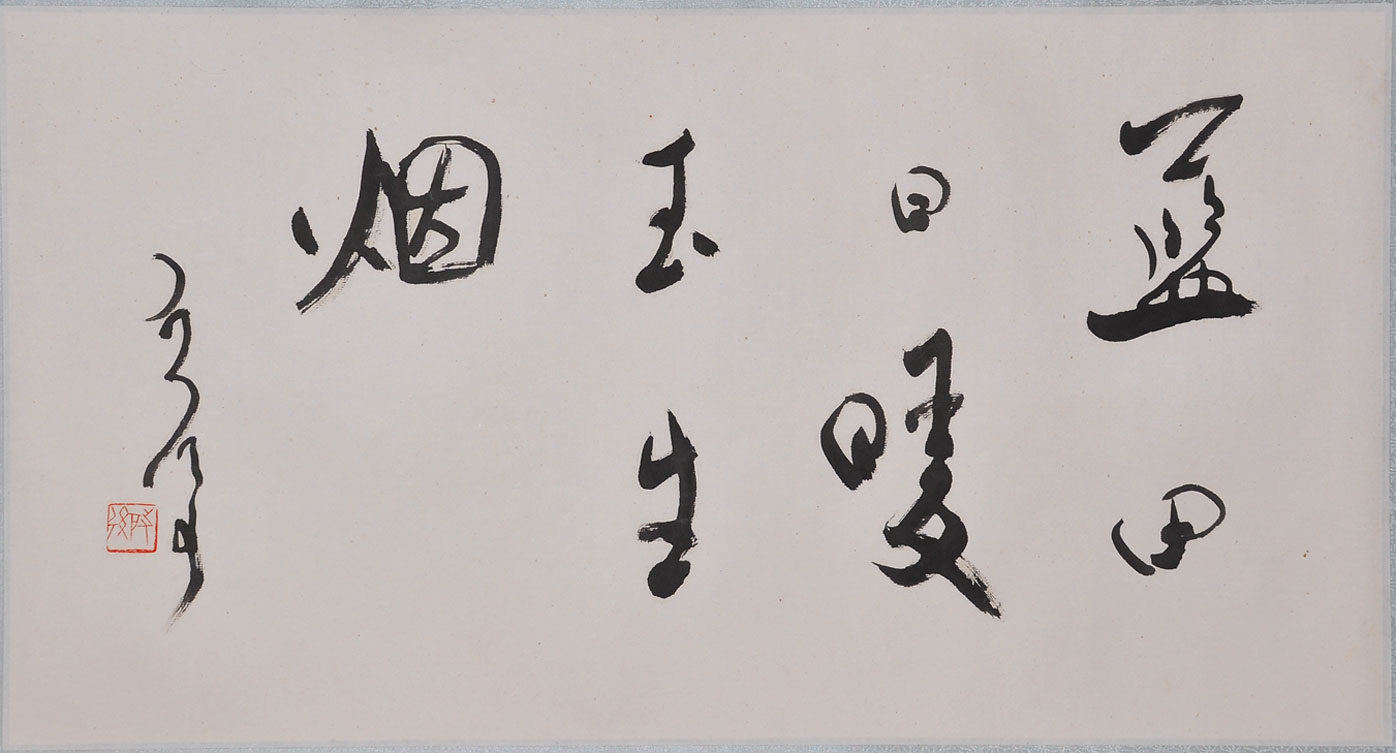 蓝田
日暖
玉生
烟